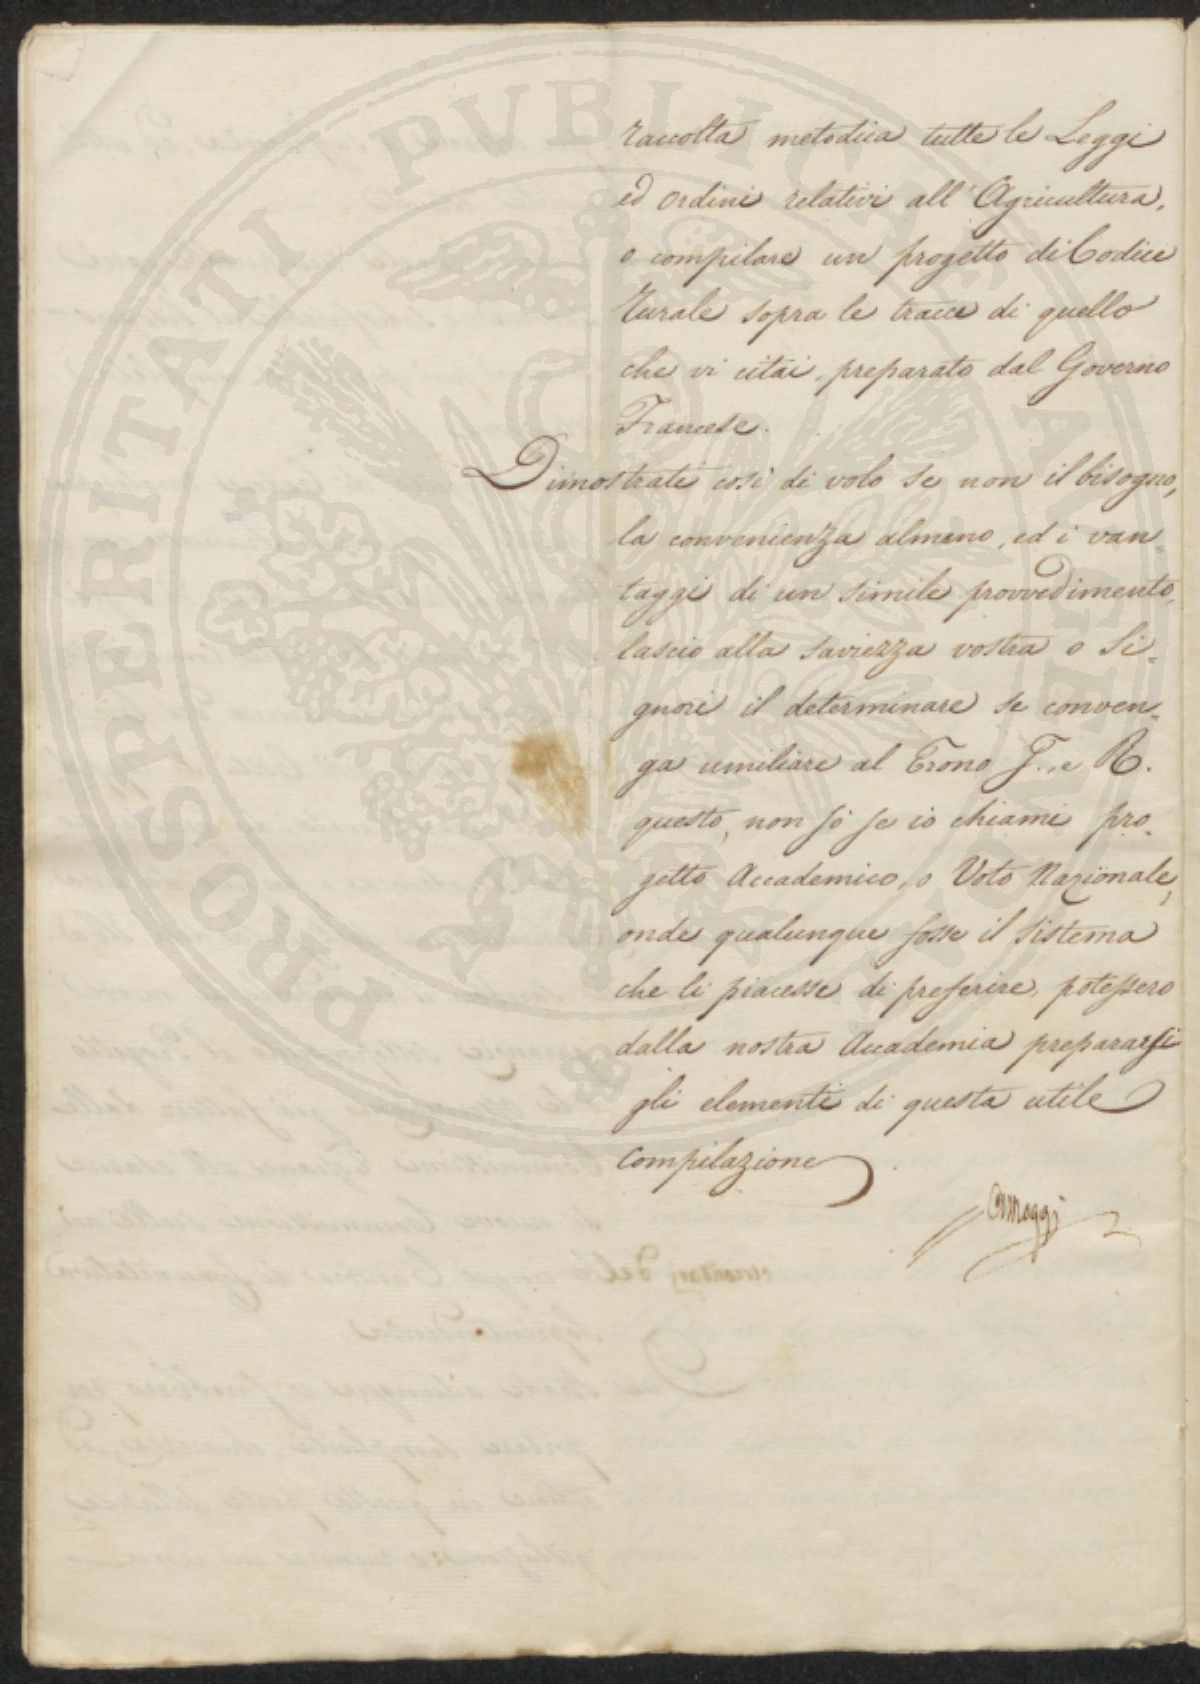 raccolta metodica tutte le Leggi
ed ordini relativi all'Agricultura,
o compilare un progetto di Codice
rurale sopra le tracce di quello
che vi citai, preparato dal Governo
Francese.
Dimostrati così di volo se non il bisogno,
la convenienza almeno, ed i van-
taggi di un simile provvedimento,
lascio alla saviezza vostra o Si-
gnori il determinare se conven-
ga umiliare al Trono I. e R.
questo, non so se io chiami pro-
getto Accademico, o Voto Nazionale,
onde qualunque fosse il sistema
che li piacesse di preferire, potessero
dalla nostra Accademia prepararsi
gli elementi di questa utile
compilazione.
PROSPERITATI PUBLICAE AUGENDAE